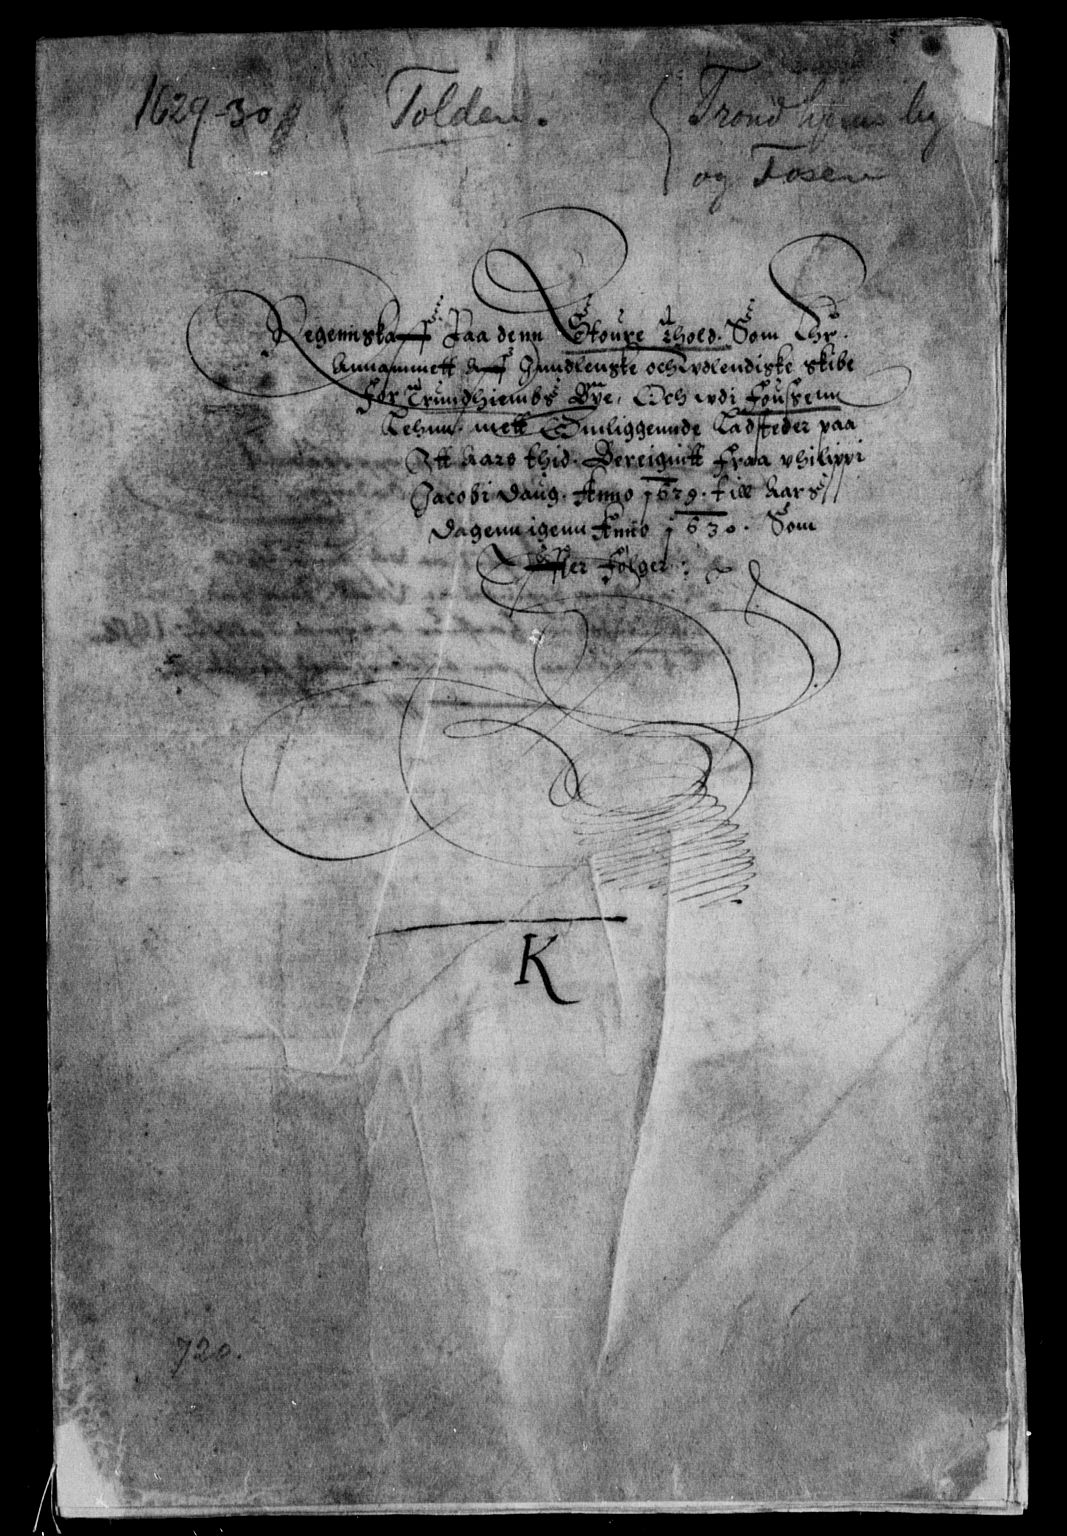 1629-30
Tolden.
Trondhjems by
og Fosen
Regennskaff Paa denn Stoure Thold. Som Ehr
Annammett aff Inndlenske och Wdlendiske skibe
for Trundhiembs Bye, Och wdi Foussenn
Lehnn. mett Omliggennde Ladsteder paa
Itt Aars thid. Bereignitt fraa philippi
Jacobi daug. Anno 1629. till Aars
dagenn igenn Anno 1630. Som
Effter Følger:
K
720.